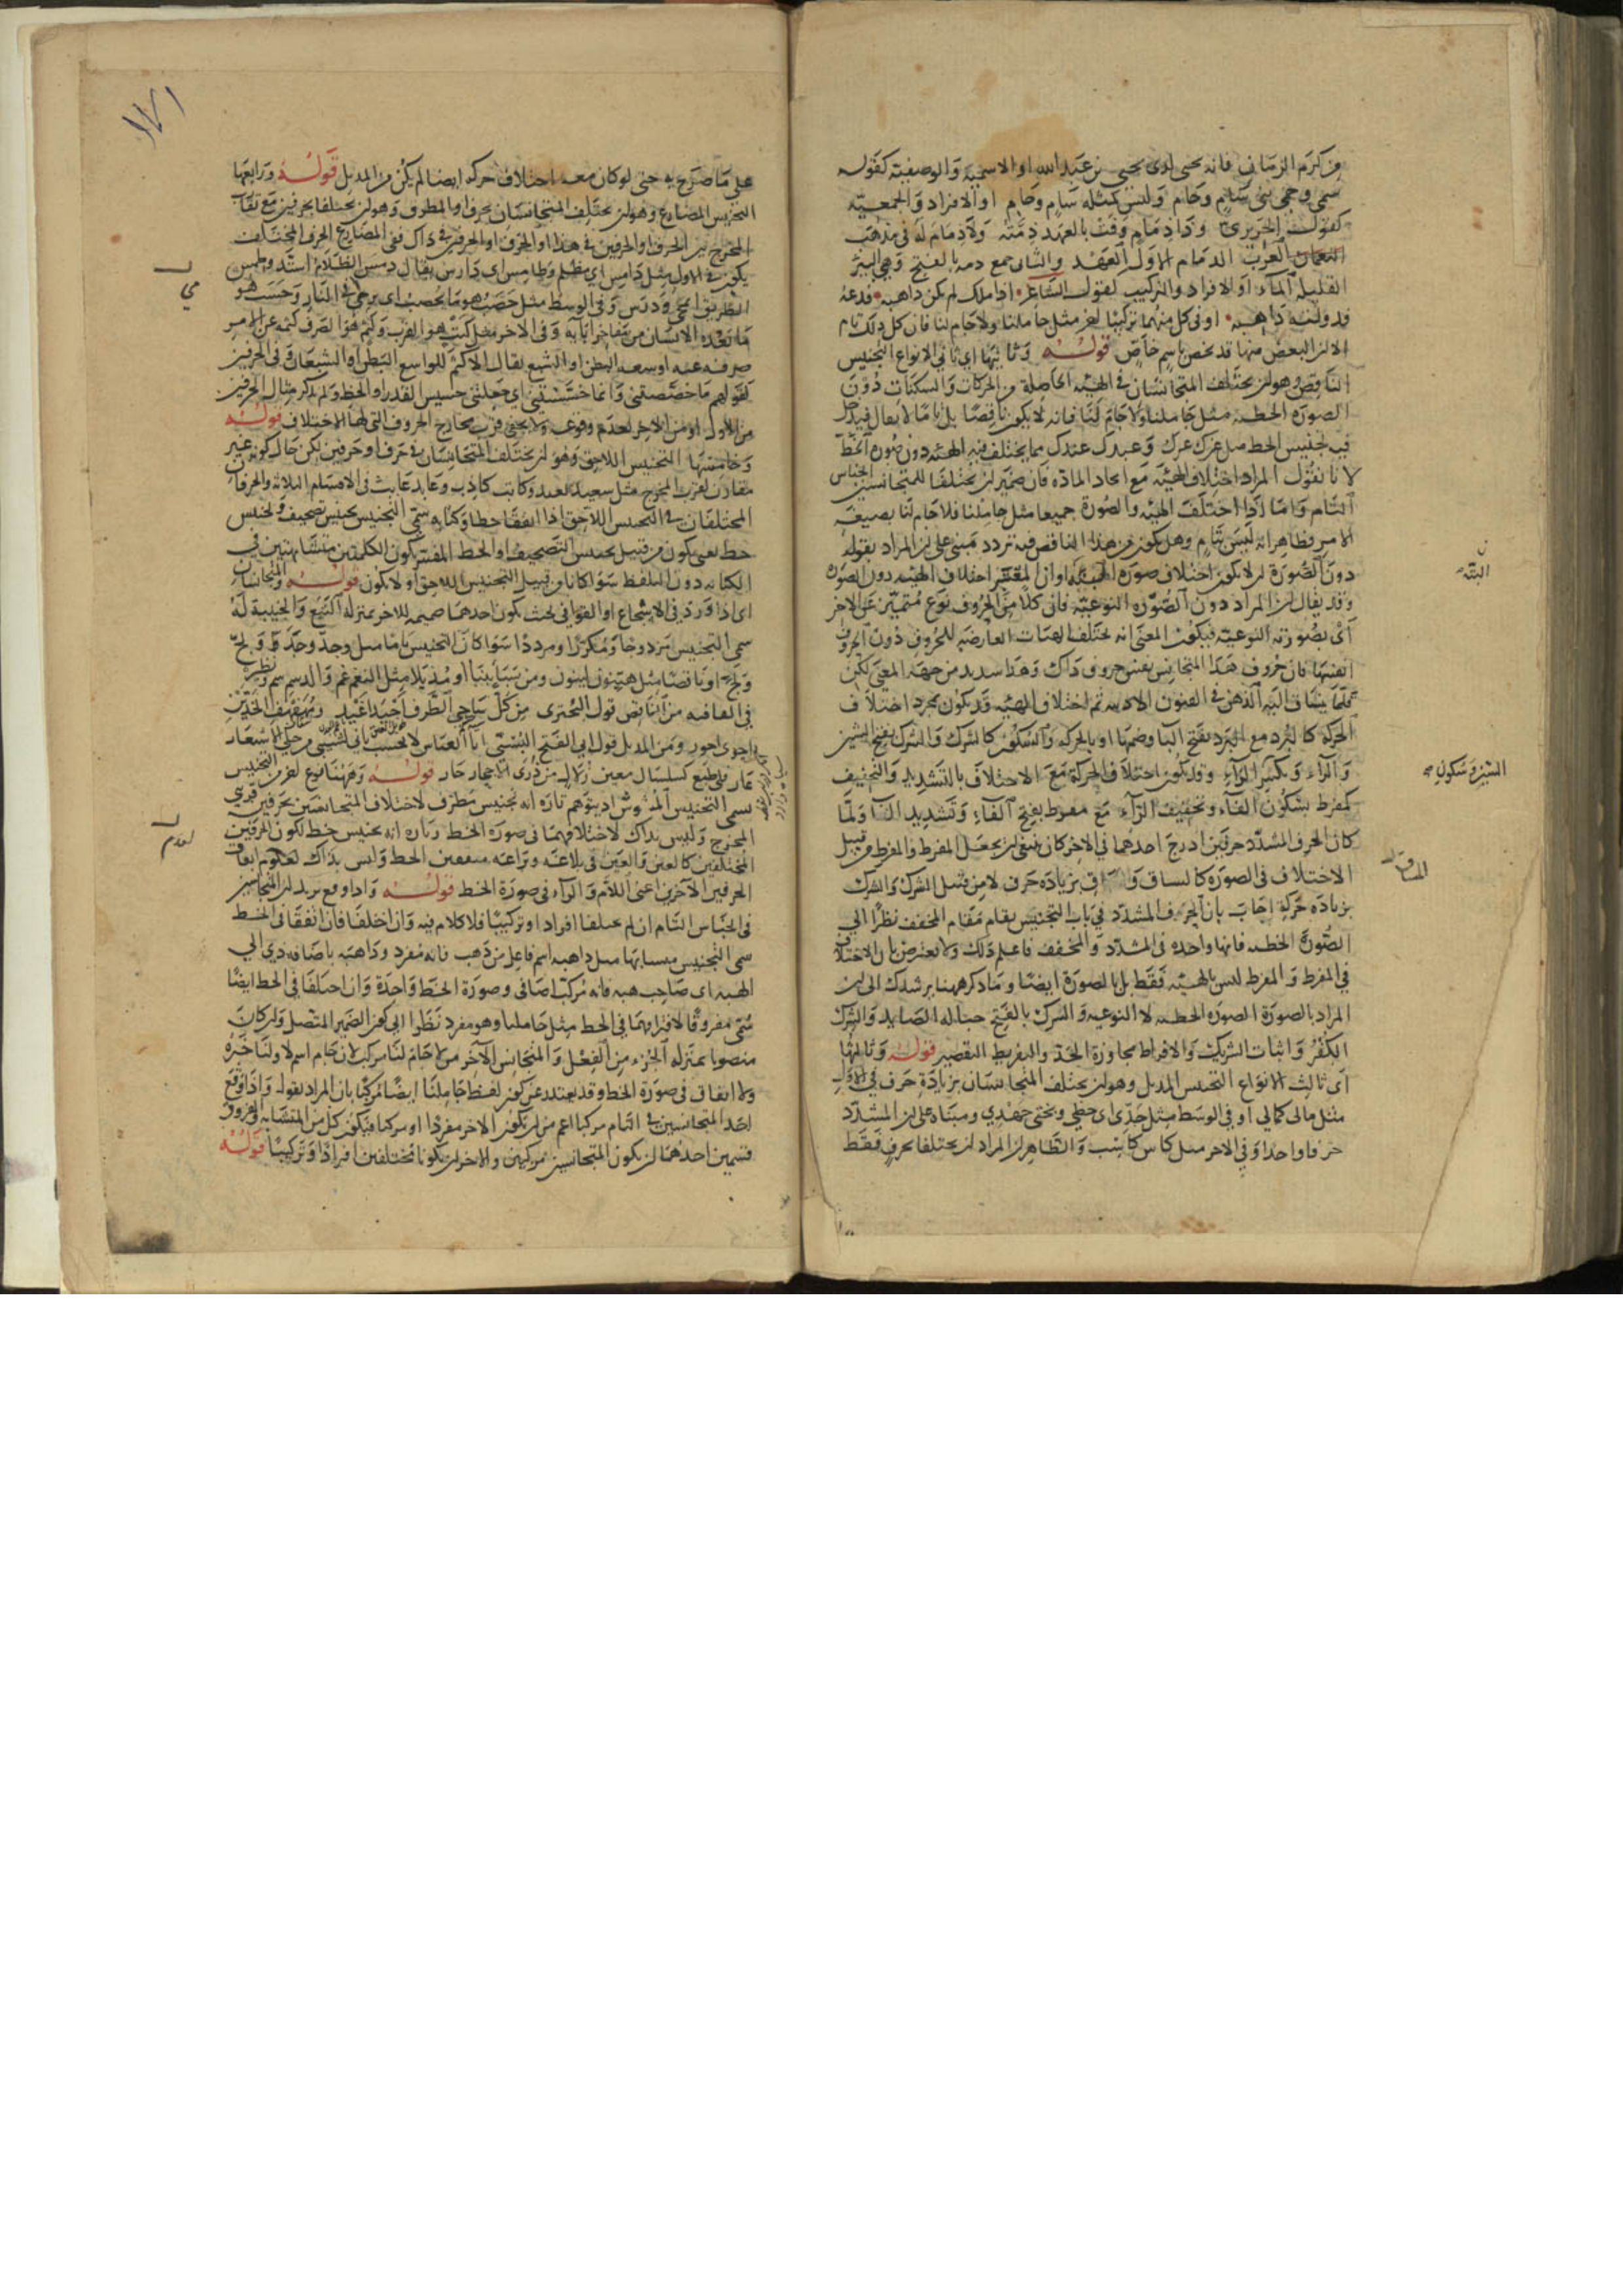 من كرم الزمان فانه يحيى لدى يحيى بن عبد الله او الاسمية والوصفية كقوله
سمى وحمى بنى سام وحام وليس كمثله سام وحام او الافراد والجمعية
كقول الحريرى وذا ذمام وفت بالعهد ذمته ولا ذمام له فى مذهب
العرب الذمام الاول العهد والثانى جمع ذمه بالفتح وهى البئر
القليلة الماء او الافراد والتركيب كقول الشاعر اذا ملك لم يكن ذاهبه فدعه
فدولته ذاهبه او فى كل منهما تركيبا لغر مثل جاملنا ولا جام لنا فان كل ذلك تام
الا ان البعض منها قد يخص باسم خاص قوله وثانيها اى ثانى الانواع التجنيس
الناقص وهو ان يختلف المتجانسان فى الهيئة الحاصلة من الحركات والسكنات دون
الصورة الخطية مثل جاملنا ولا جام لنا فانه لا يكون ناقصا بل تاما لا يقال فيدخل
فيه تجنيس الخط مثل غرك عزك مما يختلف فيه الهيئة دون صورة الخط
لانا نقول المراد اختلاف الهيئة مع اتحاد المادة فان ضمير ان يختلفا للمتجانسين الجناس
التام واما اذا اختلف الهيئة والصورة جميعا مثل جاملنا فلا جام لنا بصيغة
الامر فظاهر انه ليس بتام وهل يكون من هذا الناقص فيه تردد مبنى على ان المراد بقوله
دون الصورة ان لا يكون اختلاف صورة او ان المعتبر اختلاف الهيئة دون الصورة
وقد يقال ان المراد دون الصورة النوعية فان كلا من الحروف نوع متميز عن الاخر
اى بصورته النوعية فيكون المعنى انه يختلف الهيئات العارضة للحروف دون الحروف
انفسها فان حروف هذا المتجانس بعينه حروف ذاك وهذا سديد من جهة المعنى لكن
قلما ينساق اليه الذهن فى الفنون الادبية ثم اختلاف الهيئة قد يكون بمجرد اختلاف
الحركة كالبرد مع البرد بفتح البا وضمها او بالحركة والسكون كالشرك والشرك بفتح الشين
والراء وبكسر الراء وقد يكون اختلاف الحركة مع الاختلاف بالتشديد والتخفيف
كمفرط بسكون الفاء وتخفيف الراء مع مفرط بفتح الفاء وتشديد الرا ولما
كان الحرف المشدد حرفين ادرج احدهما فى الاخر كان ينبغى ان يجعل المفرط والمفرط من قبيل
الاختلاف فى الصورة كالساق و بزيادة حرف لا من قبيل الشرك والشرك
بزيادة حركة اجاب بان الحرف المشدد فى باب التجنيس يقام مقام المخفف نظرا الى
الصورة الخطية فانها واحدة فى المشدد والمخفف فاعلم ذلك ولا يعترض بان الاختلاف
فى المفرط والمفرط ليس بالهيئة فقط بل بالصورة ايضا وما ذكر ههنا يرشدك الى ان
المراد بالصورة الصورة الخطية لا النوعية والشرك بالفتح حبالة الصايد والشرك
الكفر واثبات الشريك والافراط مجاوزة الحد والتفريط التقصير قوله وثالثها
اى ثالث الانواع التجنيس المذيل وهو ان يختلف المتجانسان بزيادة حرف فى الاول
مثل مالى كمالى او فى الوسط مثل جدى اى حظى وبختى جهدى ومبناه على ان المشدد
حرف واحد او فى الاخر مثل كاس كاسب والظاهر ان المراد ان يختلفا بحرف فقط
البتة
الشين وسكون
المساق
على ما صرح به حتى لو كان معه اختلاف حركة ايضا لم يكن من المذيل قوله ورابعها
التجنيس المضارع وهو ان يختلف المتجانسان بحرف او المطرف وهو ان يختلفا بحرفين مع تقارب
المخرج بين الحرف او الحرفين فى هذا او الحرف او الحرفين فى ذاك ففى المضارع الحرف المختلف
يكون فى الاول مثل دامس اى مظلم وطامس اى دارس يقال دمس الظلام اشتد وطمس
الطريق امحى ودرس وفى الوسط مثل حصب هو ما يحصب اى يرمى فى النار وحسب هو
ما يعده الانسان من مفاخر ابائه وفى الاخر مثل كثب هو القرب وكثم هو الصرف كثمه عن الامر
صرفه عنه او سعة البطن او الشبع يقال الاكثم للواسع البطن او الشبعان وفى الحرفين
كقولهم ما خصصتنى وانما خسستنى اى جعلتنى خسيس القدر او الحظ ولم يذكر مثال الحرفين
من الاول او من الاخر لعدم وقوعه ولا يخفى قرب مخارج الحروف التى لها الاختلاف قوله
وخامسها التجنيس اللاحق وهو ان يختلف المتجانسان فى حرف او حرفين لكن حال كونه غير
مقارن لقرب المخرج مثل سعيد بعيد وكاتب كاذب وعابد عابث فى الاقسام الثلاثة والحرفان
المختلفان فى التجنيس اللاحق اذا اتفقا خطا وكتابة سمى التجنيس تجنيس تصحيف وتجنيس
خط يعنى يكون من قبيل تجنيس التصحيف او الخط المفسر بكون الكلمتين متشابهتين فى
الكتابة دون التلفظ سوا كانا من قبيل التجنيس اللاحق او لا يكون قوله والمتجانسان
اى اذا ورد فى الاسجاع او القوافى بحيث يكون احدهما ضميمة للاخر بمنزلة التبع والجنيبة له
سمى التجنيس مزدوجا ومكررا ومرددا سوا كان التجنيس تاما مثل وجد وجد
او ناقصا مثل هينون لينون ومن سبأ بنبأ او مذيلا مثل النغم غم والدسم سم
فى القافية من الناقص قول البحترى من كل ساجى الطرف اغيد اجيد ومهفهف
ومن المذيل قول ابى الفتح البستى ابا العباس لا تحسب بانى لشيى من حلى الاشعار
عار فلى طبع كسلسال معين زلال من ذرى الاحجار جار قوله وههنا نوع اخر من التجنيس
يسمى التجنيس المشوش اذ يتوهم تارة انه تجنيس مطرف لاختلاف المتجانسين بحرفين قريبى
المخرج وليس بذاك لاختلافهما فى صورة الخط وتارة انه تجنيس خط لكون الحرفين
المختلفين كالعين والغين فى بلاغته وبراعته متفقين الخط وليس بذاك لعدم اتفاق
الحرفين الاخرين اعنى اللام والراء فى صورة الخط قوله واذا وقع يريد ان المتجانسين
فى الجناس التام ان لم يختلفا افرادا وتركيبا فلا كلام فيه وان اختلفا فان اتفقا فى الخط
سمى التجنيس متشابها مثل ذاهبه اسم فاعل من ذهب فانه مفرد وذاهبه باضافة ذى الى
الهبة اى صاحب هبة فانه مركب اضافى وصورة الخط واحدة وان اختلفا فى الخط ايضا
سمى مفروقا لافتراقهما فى الخط مثل جاملنا وهو مفرد نظرا الى كون الضمير المتصل وان كان
منصوبا بمنزلة الجزء من الفعل والمتجانس الاخر من لا جام لنا مركب لان جام اسم لا ولنا خبره
ولا اتفاق فى صورة الخط وقد يعتذر عن كون لفظ جاملنا ايضا مركبا بان المراد بقوله واذا وقع
احد المتجانسين فى التام مركبا اعم من ان يكون الاخر مفردا او مركبا فيكون كل من المتشابه والمفروق
قسمين احدهما ان يكون المتجانسين مركبين والاخر ان يكونا مختلفين افرادا وتركيبا قوله